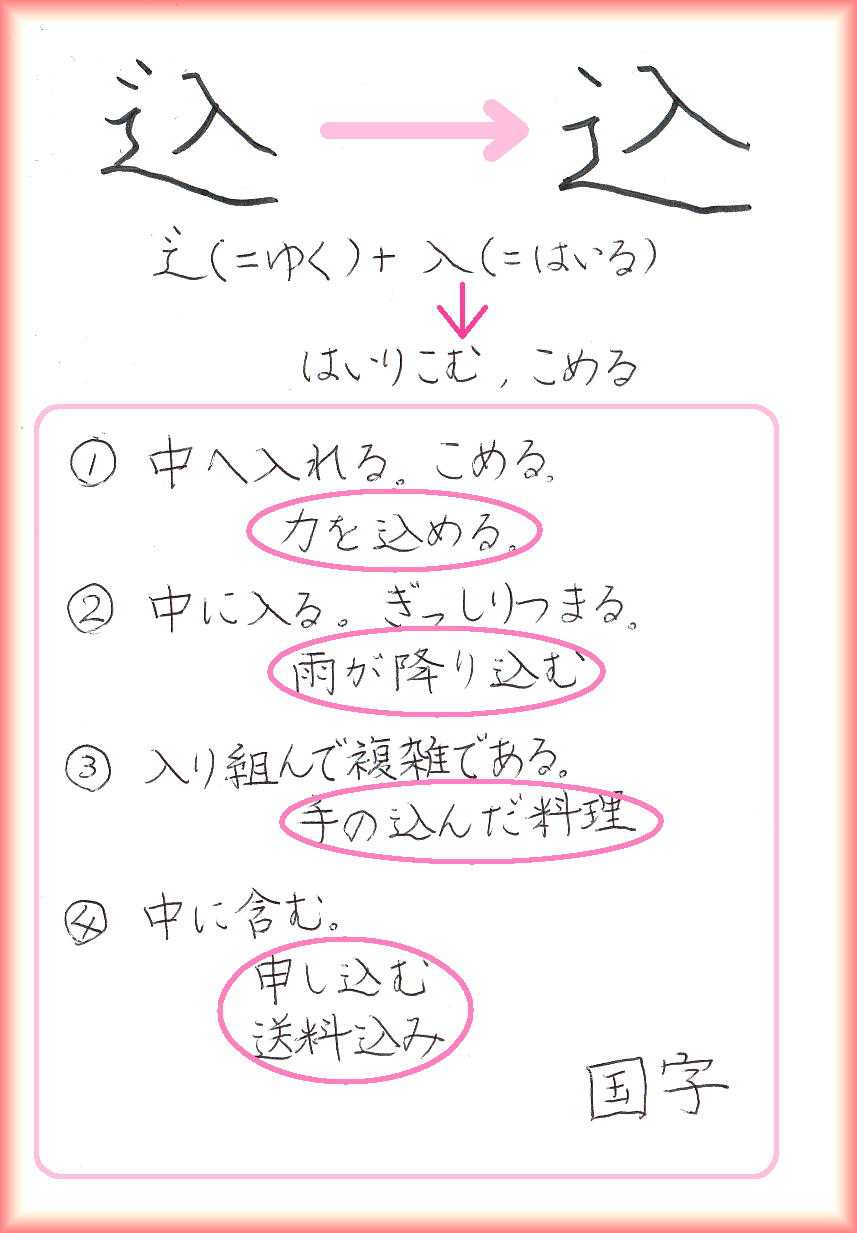 込 → 込
辶(=ゆく)+ 入(=はいる)
↓
はいりこむ, こめる
① 中へ入れる。こめる。
力を込める。
② 中に入る。ぎっしりつまる。
雨が降り込む
③ 入り組んで複雑である。
手の込んだ料理
④ 中に含む。
申し込む
送料込み
国字